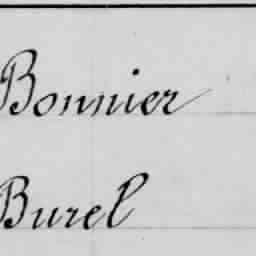 Bonnier
Burel